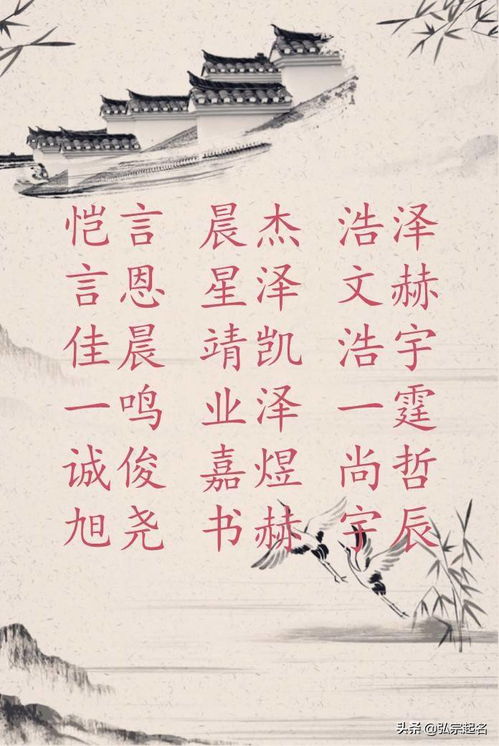 恺言 晨杰 浩泽
言恩 星泽 文赫
佳晨 靖凯 浩宇
一鸣 业泽 一霆
诚俊 嘉煜 尚哲
旭尧 书赫 宇辰
头条 @弘宗起名